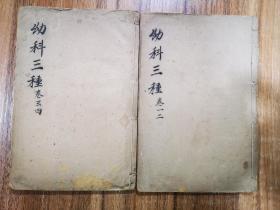 幼科三種
卷一二
幼科三種
卷三四